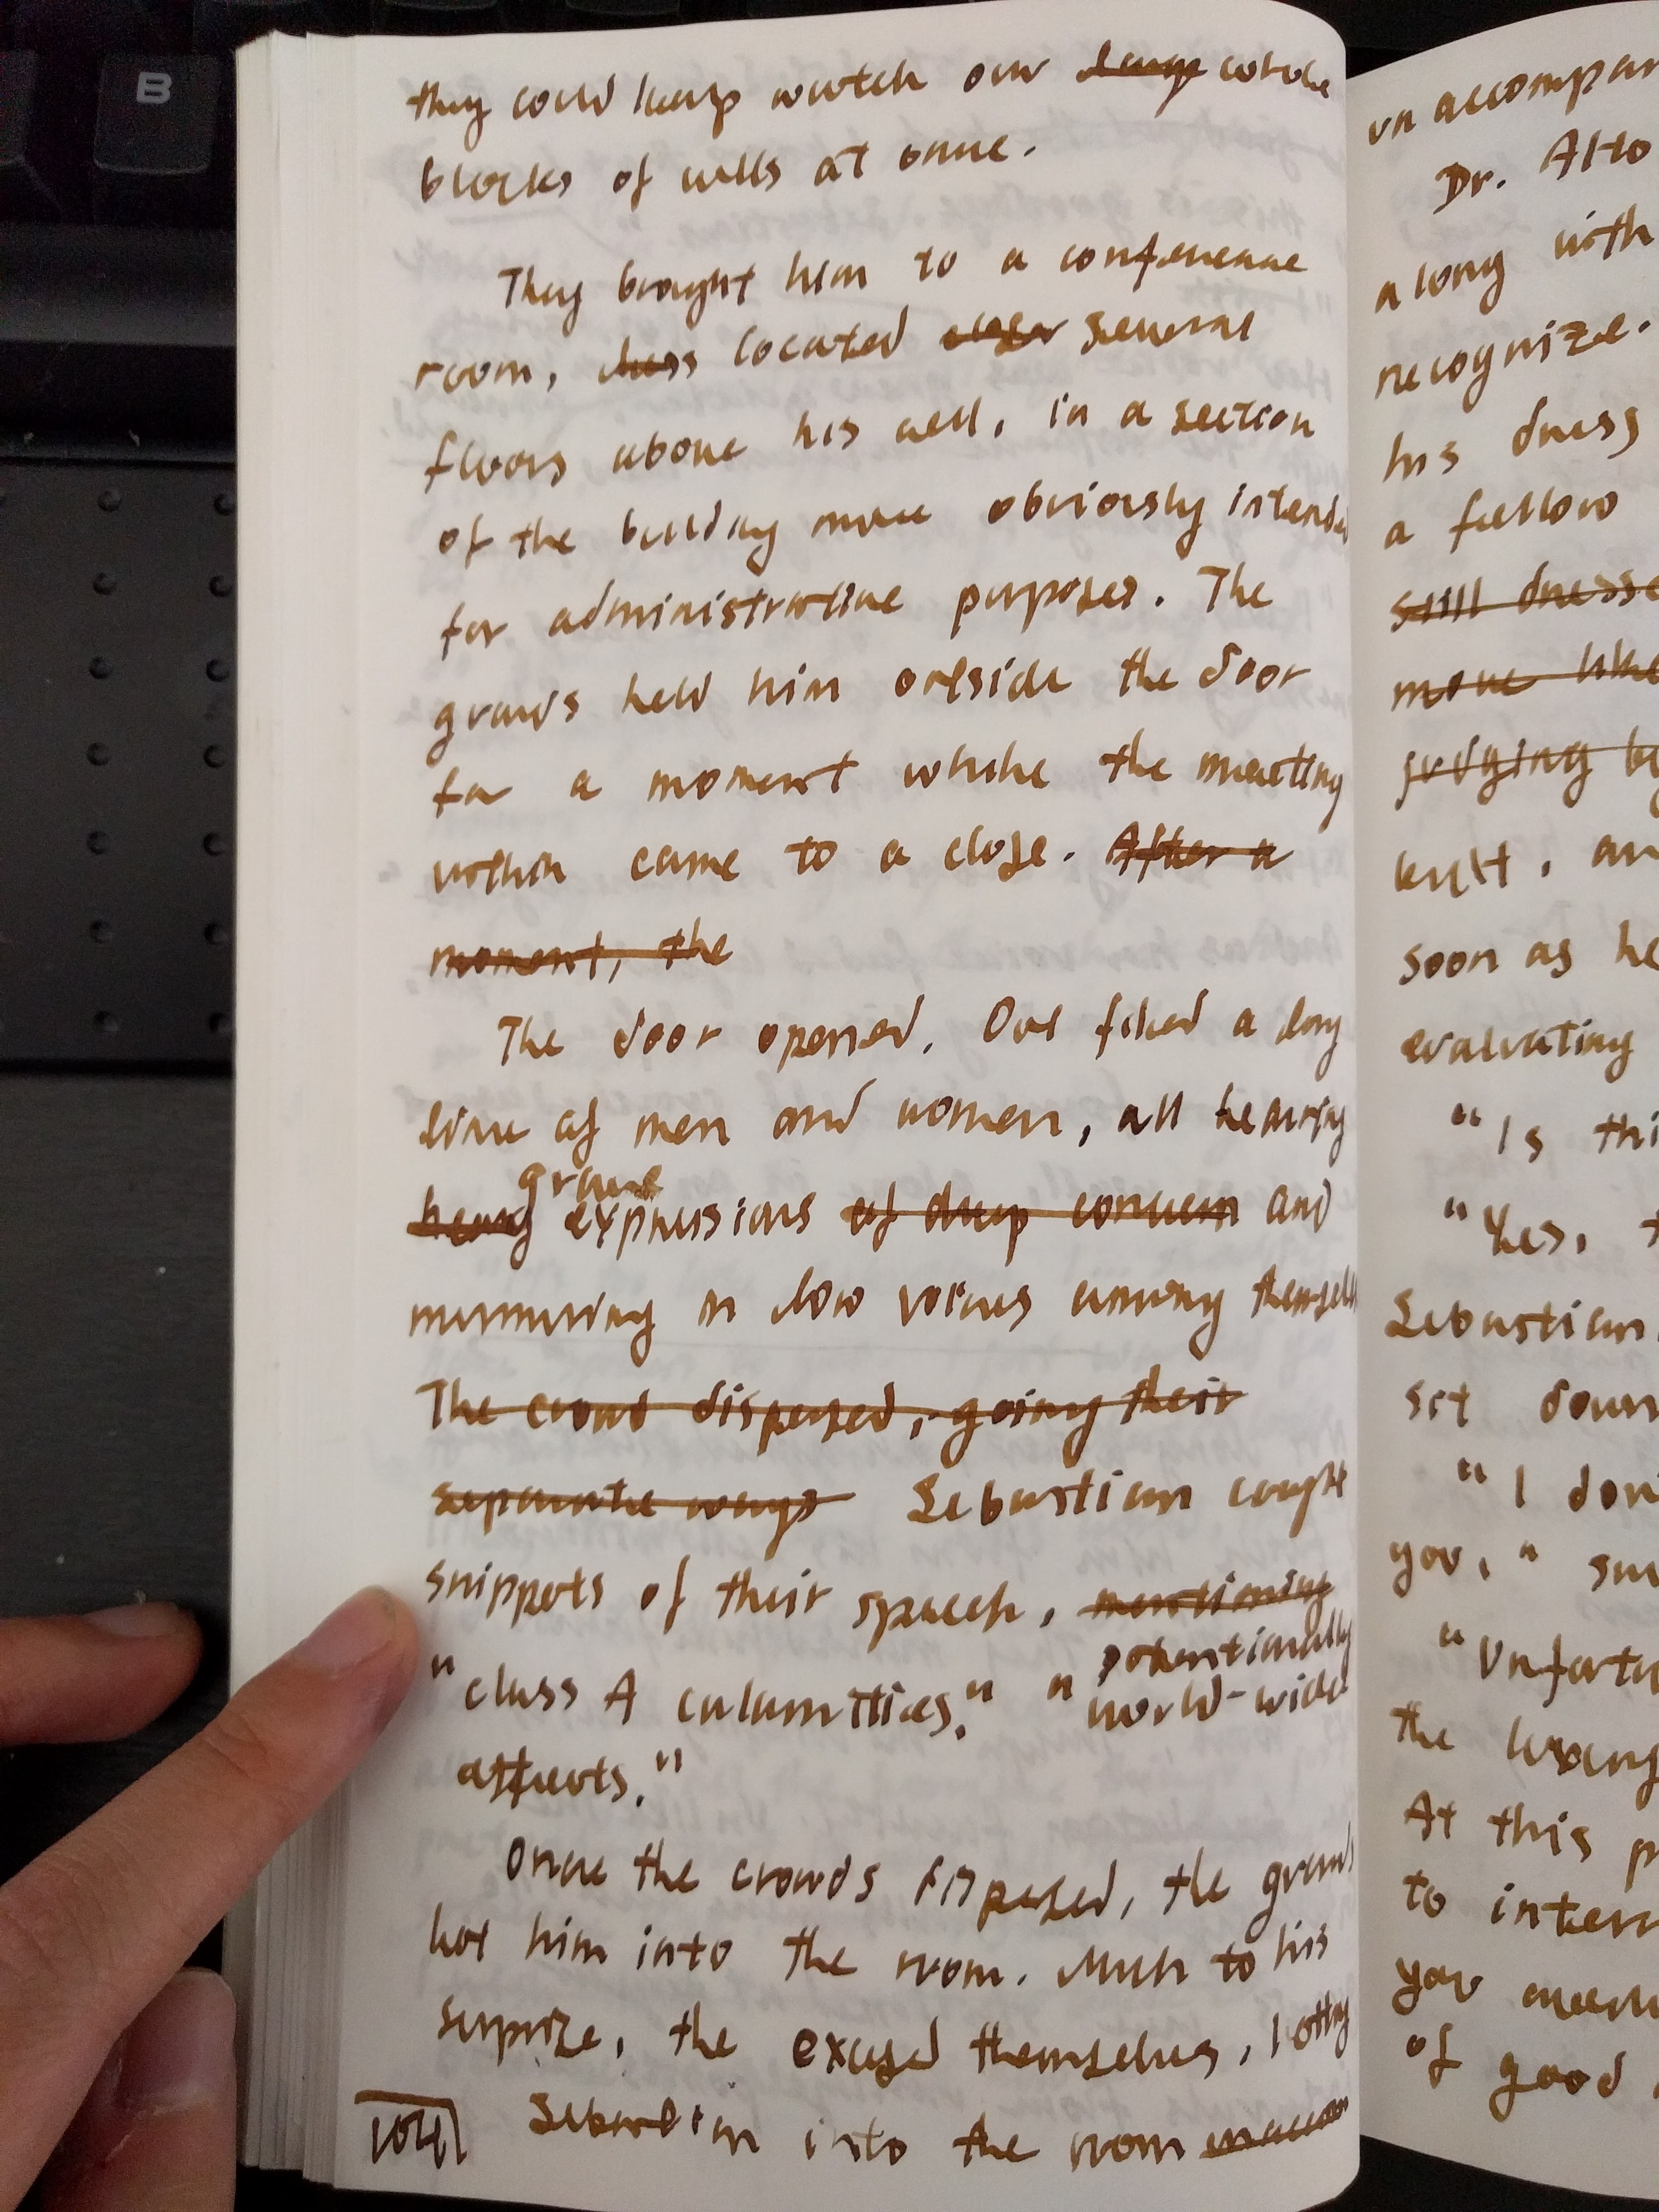 B
they could keep watch over whole
blocks of cells at once.
They brought him to a conference
room, located several
floors above his cell, in a section
of the building more obviously intended
for administrative purposes. The
guards held him outside the door
for a moment while the meeting
within came to a close. After a
moment, the
The door opened. Out filed a long
line of men and women, all bearing
grave
heavy expressions of deep concern and
murmuring in low voices among themselves
The crowd dispersed, going their
separate ways Sebastian caught
snippets of their speech, mentioning
potentially
"class A calamities," " world-wide
affects."
Once the crowds dispersed, the guards
let him into the room. Much to his
surprise, the excused themselves, letting
Sebastian into the room
104
un accompan
Dr. Alto
along with
recognize.
his dress
a fellow
still dresse
move like
judging by
kept, an
soon as he
evaluating
"Is thi
"Yes, t
Sebastian
sit down
"I don
you," sm
"Unfortu
the
At this p
to interr
you
of good